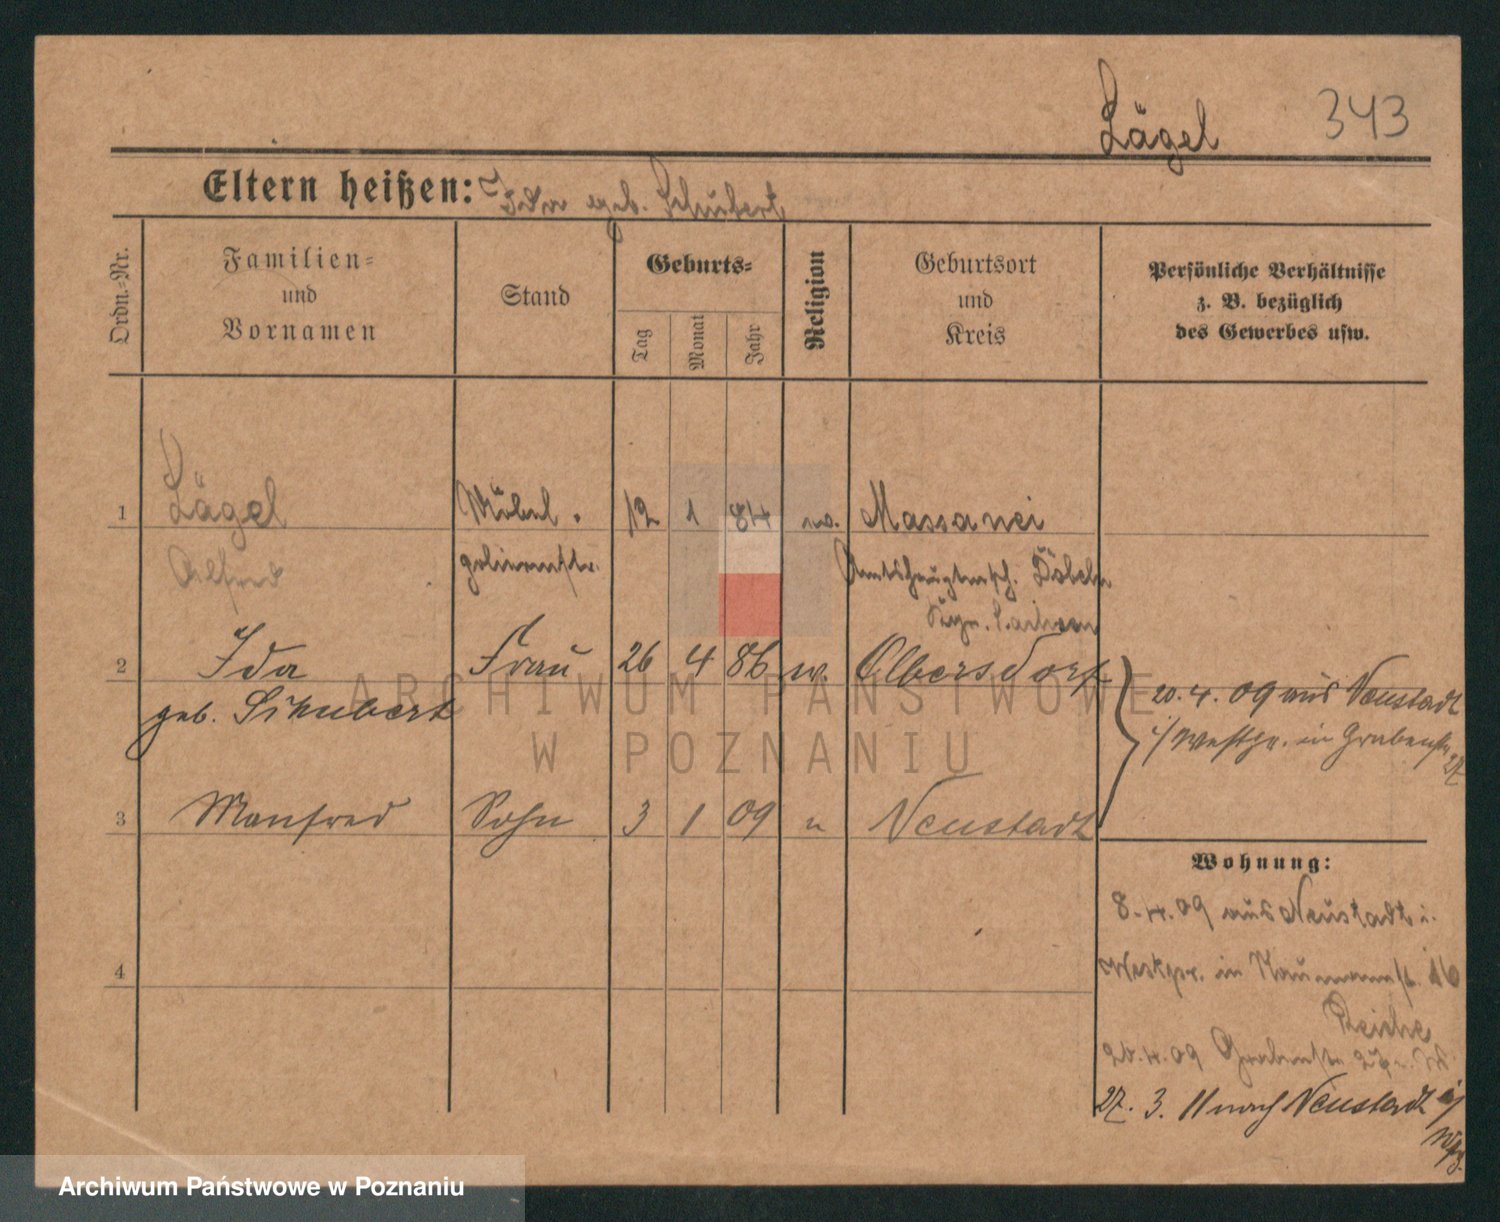 Lägel 343
Eltern heißen: Ida geb. Schubert
Ordn.-Nr.
Familien-
und
Vornamen
Stand
Geburts-
Tag
Monat
Jahr
Religion
Geburtsort
und
Kreis
Persönliche Verhältnisse
z. B. bezüglich
des Gewerbes usw.
1 Lägel Möbel- 12 1 84 Massanei
Alfred Amtshauptmsch. Döbeln
Kgr. Sachsen
2 Ida Frau 26 4 86 w. Olbersdorf
geb. Schubert
20.4.09 aus Neustadt
i/Westpr. in Grabenstr.
27
3 Manfred Sohn 3 1 09 " Neustadt
Wohnung:
8.4.09 aus Neustadt i.
Westpr. in Naumannst. 16
Reiche
20.4.09 Grabenstr. 27
4
27. 3. 11 nach Neustadt i/
Wpr.
ARCHIWUM PAŃSTWOWE
W POZNANIU
Archiwum Państwowe w Poznaniu